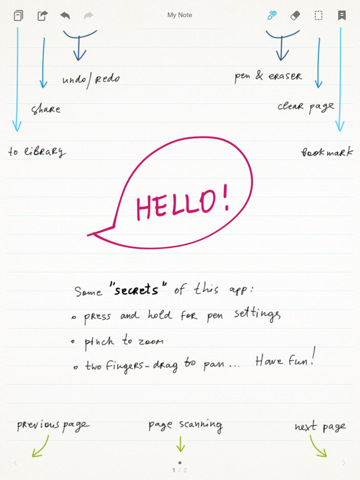 My Note
undo/redo
pen & eraser
share
clear page
to library
bookmark
HELLO!
Some "secrets" of this app:
• press and hold for pen settings
• pinch to zoom
• two fingers-drag to pan... Have fun!
previous page
page scanning
next page
1 / 2